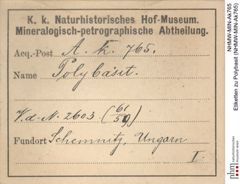 K. k. Naturhistorisches Hof-Museum.
Mineralogisch-petrographische Abtheilung.
Acq.-Post A. k. 765.
Name Polybasit.
V. d. N. 2603 (61/59)
Fundort Schemnitz, Ungarn
I.
NHMW-MIN-Ak765
Etiketten zu Polybasit (NHMW-MIN-Ak765)
nhm